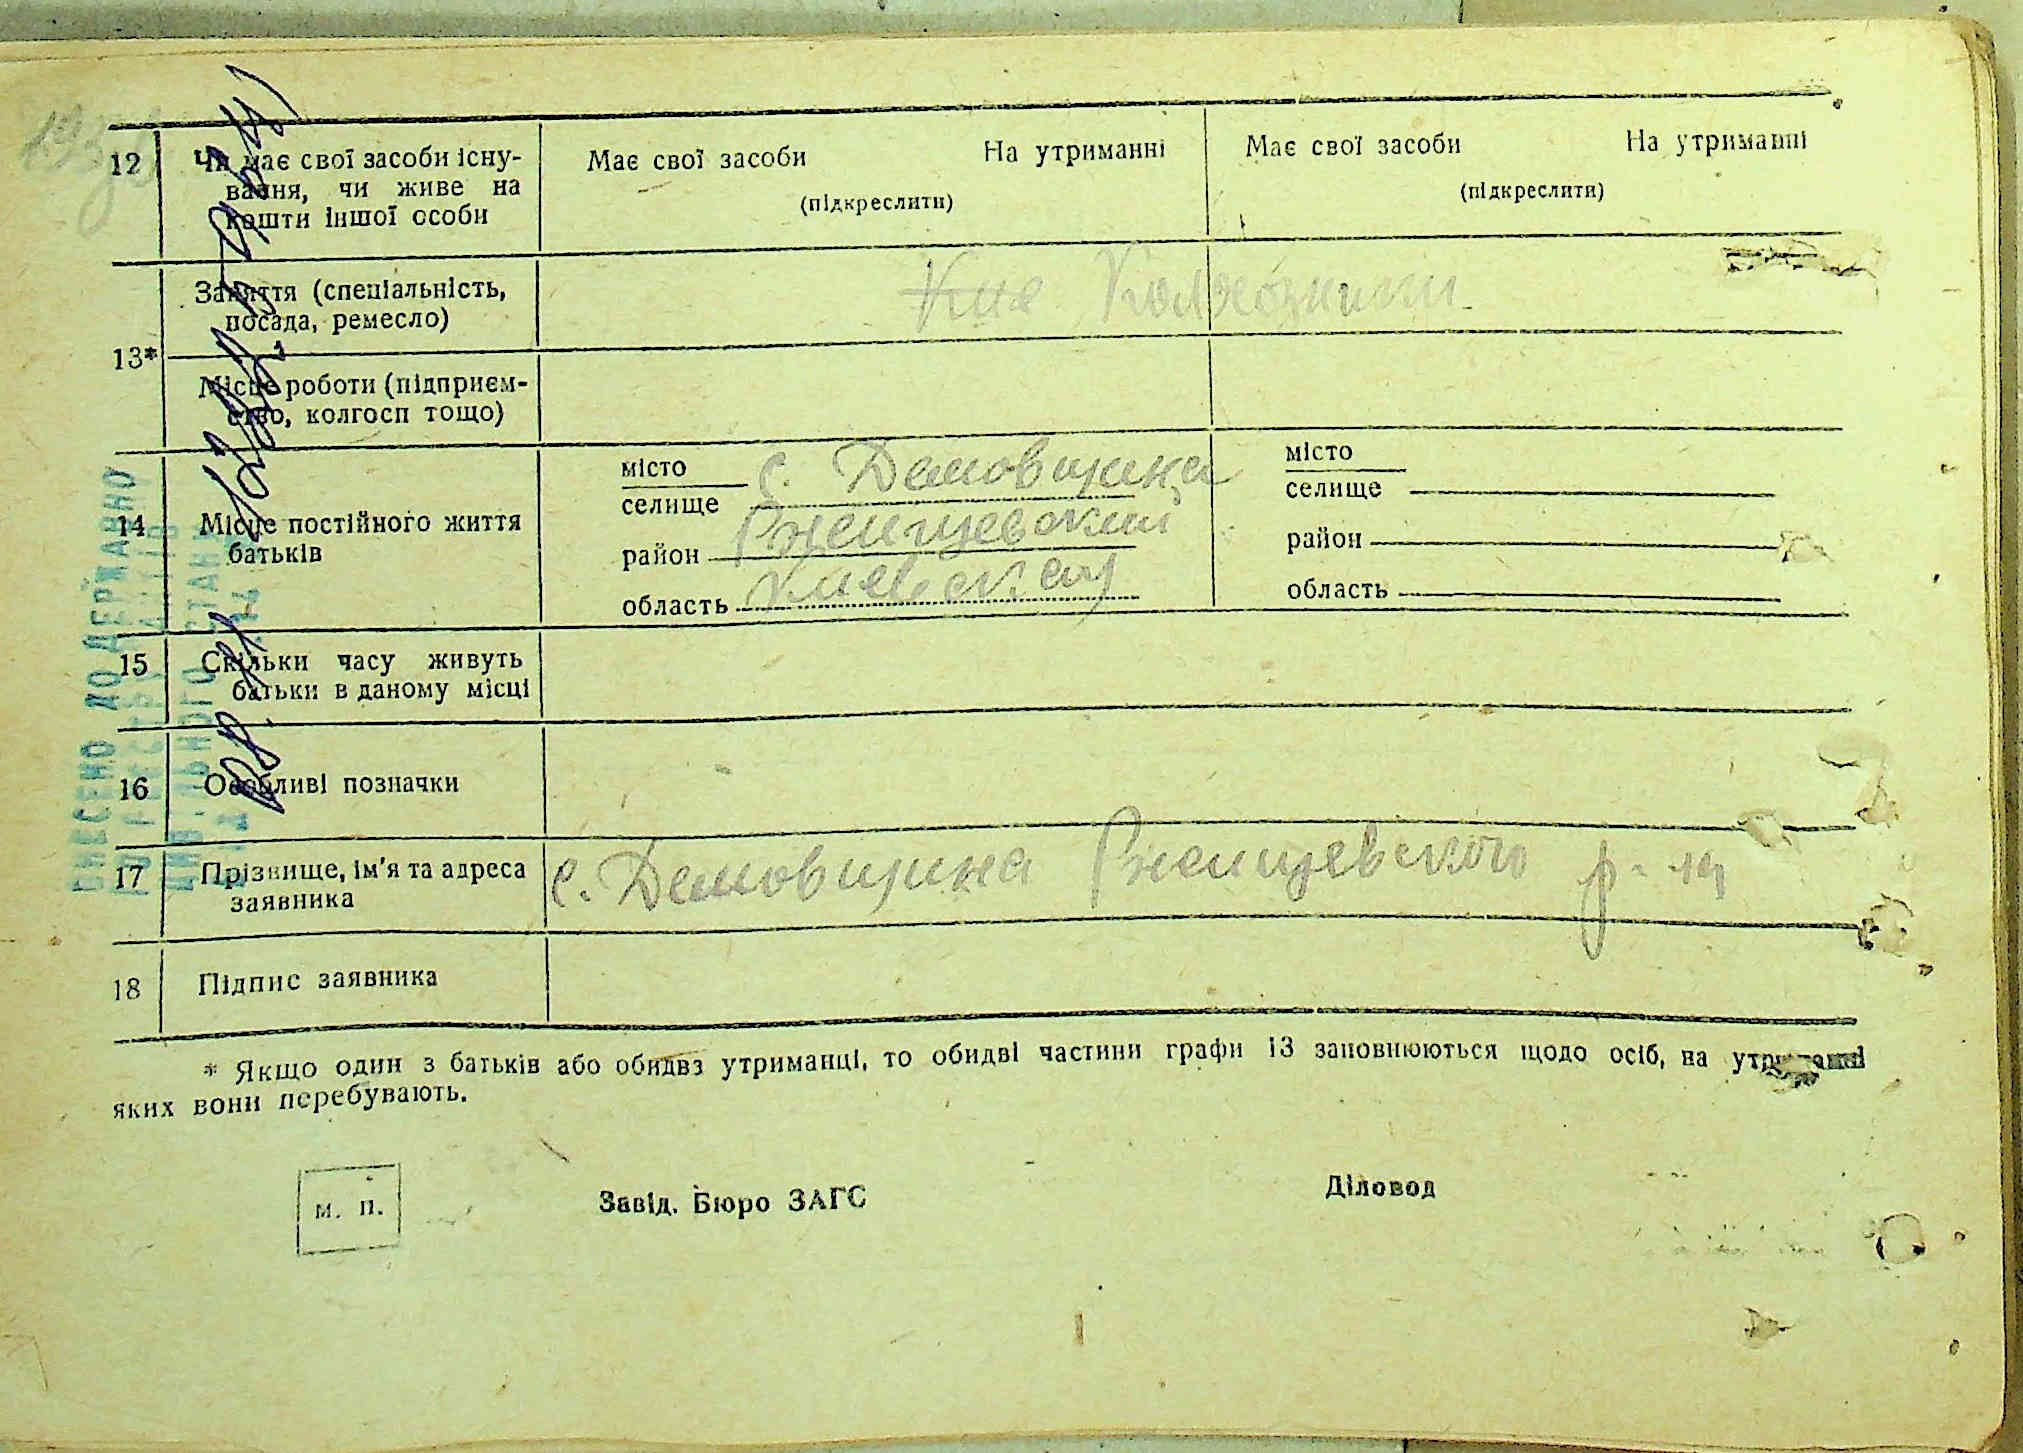 12
Чи має свої засоби існу-
вання, чи живе на
кошти іншої особи
Має свої засоби На утриманні
(підкреслити)
Має свої засоби На утриманні
(підкреслити)
13*
Заняття (спеціальність,
посада, ремесло)
Колхозники
Місце роботи (підприєм-
ство, колгосп тощо)
14
Місце постійного життя
батьків
місто
селище
с. Демовщина
район Ржищевский
область Киевская
місто
селище
район
область
15
Скільки часу живуть
батьки в даному місці
16
Особливі позначки
17
Прізвище, ім'я та адреса
заявника
с. Демовщина Ржищевского р-на
18
Підпис заявника
* Якщо один з батьків або обидва утриманці, то обидві частини графи 13 заповнюються щодо осіб, на утриманні
яких вони перебувають.
м. п.
Завід. Бюро ЗАГС
Діловод
ВНЕСЕНО ДО ДЕРЖАВНО